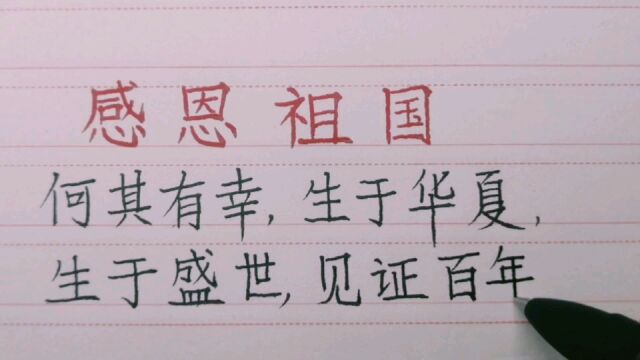 感恩祖国
何其有幸,生于华夏,
生于盛世,见证百年